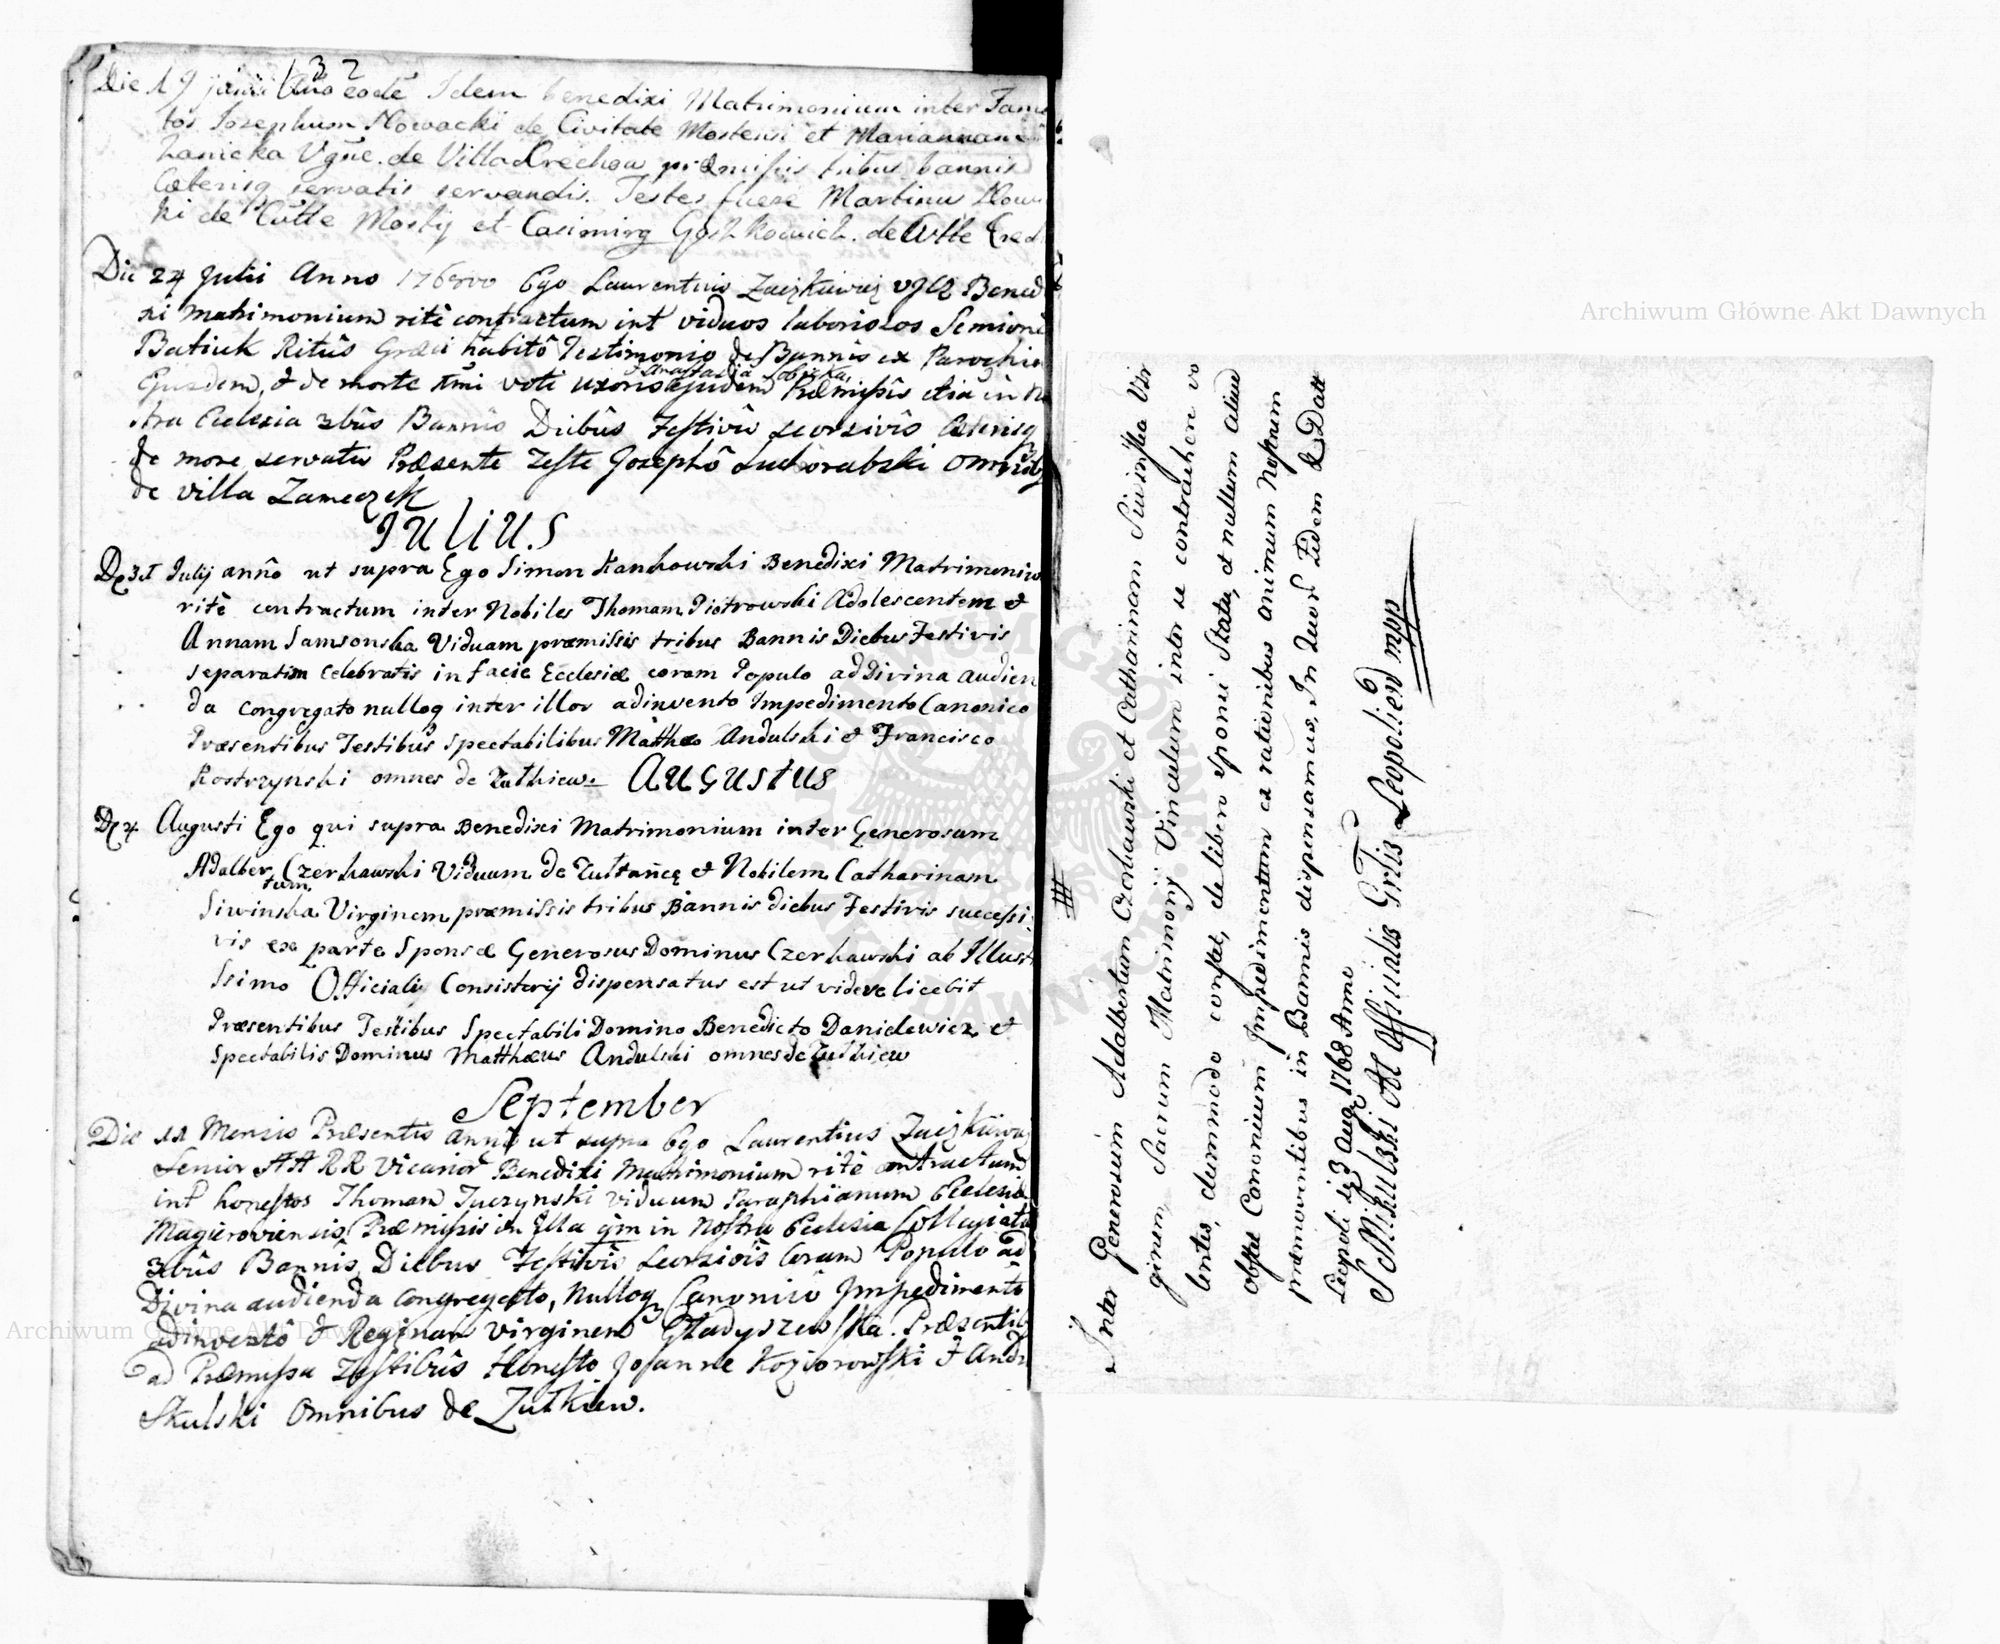 132
Die 19 junii Ano eodē Idem benedixi Matrimonium inter Fama
tos Josephum Nowacki de Civitate Mostensi et Mariannam
de Villa Krechow præmissis tribus bannis
Cæterisq servatis servandis. Testes fuere Martinus Now
ki de Civtte Mosty et Casimirq de Cvtte
Die 24 Julii Anno Ego Laurentius Benedi
xi matrimonium ritè contractum int viduos laboriosos Semioni
Batiuk Ritûs Græci habitô Testimonio de Bannis ex Parochia
Anastasia
Ejusdem, & de morte voti uxoris ejusdem Præmissis etiā in No
stra Ecclesia 3bûs Bannis Diebûs Festivis seorsivis Cæterisq
de more servatis Præsente Teste Josephô Suchorabski omnibq
de villa Zameczek
JULIUS
De 3tia Julij annô ut supra Ego Simon Kankowski Benedixi Matrimonium
ritè contractum inter Nobiles Thomam Piotrowski Adolescentem &
Annam Samsonska Viduam præmissis tribus Bannis Diebus Festivis
separatim celebratis in facie Ecclesiæ coram Populo ad Divina audien
da congregato nulloq inter illos adinvento Impedimento Canonico
Præsentibus Testibus spectabilibus Matthæo Andulski & Francisco
Kostrzynski omnes de Zulkiew. AUGUSTUS
De 4 Augusti Ego qui supra Benedixi Matrimonium inter Generosum
Adalber Czerkawski Viduum de & Nobilem Catharinam
tum
Siwinska Virginem præmissis tribus Bannis diebus Festivis successi
vis ex parte Sponsæ Generosus Dominus Czerkawski ab Illust
ssimo Officialij Consistorij dispensatus est ut videre licebit
Præsentibus Testibus Spectabili Domino Benedicto Danielewicz et
Spectabilis Dominus Matthæus Andulski omnes de Zulkiew
September
Die 11 Mensis Præsentis anni ut supra Ego Laurentius
Senior AA RR Vicarior Benedixi Matrimonium ritè contractum
int honestos Thomam Juczynski viduum Paraphianum Ecclesiæ
Magieroviensis, Præmissis in Illa qm in Nostra Ecclesia Collegiata
3bûs Bannis, Diebus Festivis Seorsivis Coram Populo ad
Divina audienda congregato, Nulloq Canonico Impedimento
adinventô & Reginam virginem Gładyszewska. Præsentib
ad Præmissa Testibûs Honesto Joanne Koziorowski & Andr
Skulski Omnibus de Zulkiew.
Inter Generosum Adalbertum Czerkawski et Catharinam Siwinska Vir
ginem, Sacrum Matrimonij Vinculum inter se contrahere vo
lentes, dummodo constet, de libero sponsi Statu, et nullum aliud
obstet Canonicum Impedimentum ex rationibus animum Nostrum
præmoventibus in Bannis dispensamus, In Quor Fidem & Datt
Leopoli die 3 Aug 1768 Anno
S Mikulski Officialis Grlis Leopolien mpp
Archiwum Główne Akt Dawnych
Archiwum Główne Akt Dawnych